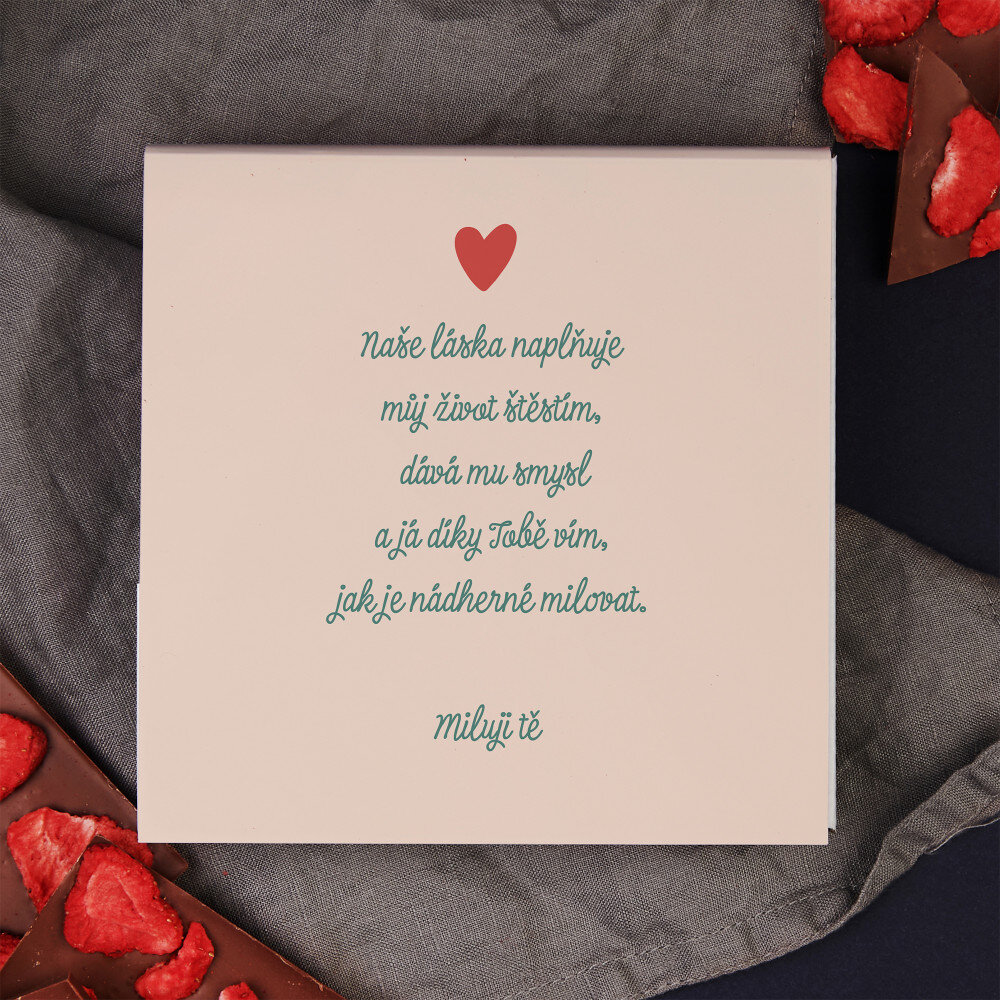 Naše láska naplňuje
můj život štěstím,
dává mu smysl
a já díky Tobě vím,
jak je nádherné milovat.
Miluji tě